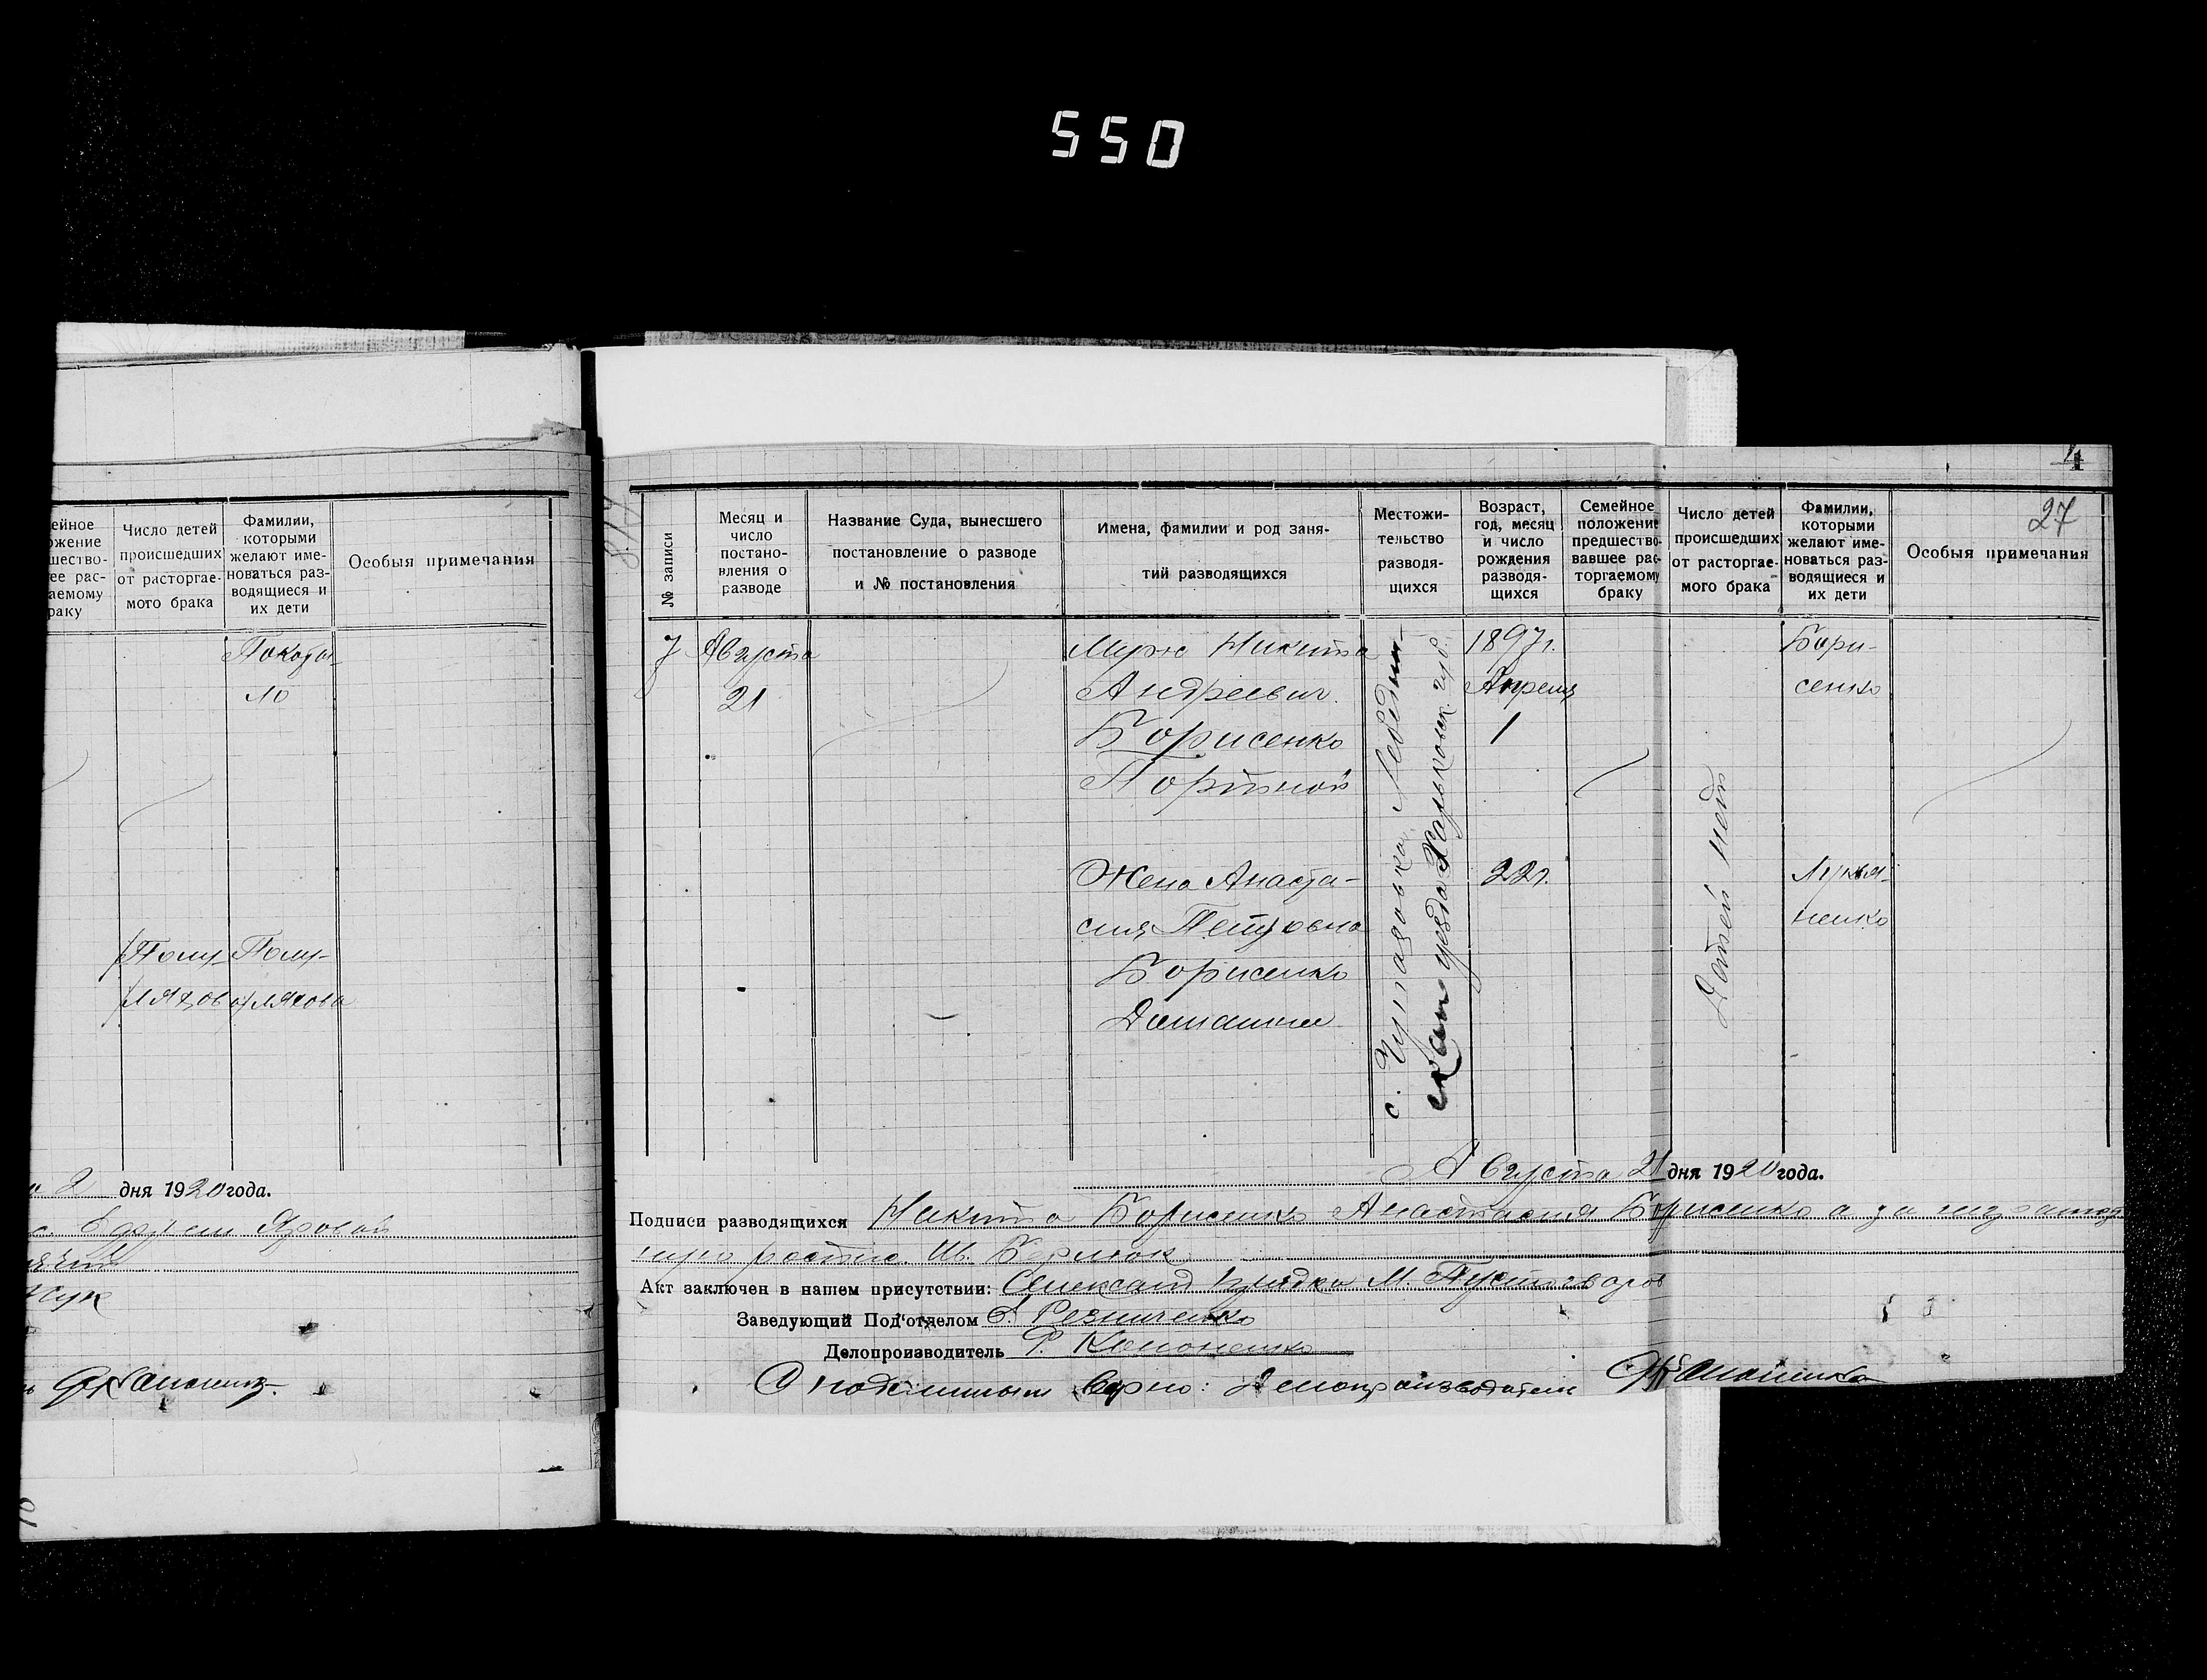 550
4
27
ейное
жение
шество-
ее рас-
аемому
раку
Число детей
происшедших
от расторгае-
мого брака
Фамилии,
которыми
желают име-
новаться раз-
водящиеся и
их дети
Особыя примечания
Покота-
ло
Полу- Полу-
ляхов ляхова
2 дня 1920 года.
Яровой
№ записи
Месяц и
число
постано-
вления о
разводе
Название Суда, вынесшего
постановление о разводе
и № постановления
Имена, фамилии и род заня-
тий разводящихся
Местожи-
тельство
разводя-
щихся
Возраст,
год, месяц
и число
рождения
разводя-
щихся
Семейное
положение
предшество-
вавшее рас-
торгаемому
браку
Число детей
происшедших
от расторгае-
мого брака
Фамилии,
которыми
желают име-
новаться раз-
водящиеся и
их дети
Особыя примечания
7
Августа
21
Муж Никита
Андреевич
Борисенко
Портной
Жена Анаста-
сия Петровна
Борисенко
Домашн
с. Чупаховка, Лебедин-
скаго уезда Харьковск. губ.
1897г.
Апреля
1
22г.
Детей нет
Бори-
сенко
Лукья-
ненко
Августа 21 дня 1920 года.
Подписи разводящихся Никита Борисенко Анастасия Борисенко а за
Акт заключен в нашем присутствии: М. Пустоваров
Заведующий Под'отделом Резниченко
Делопроизводитель Р. Кононенко
С подлинным верно: Делопроизводитель